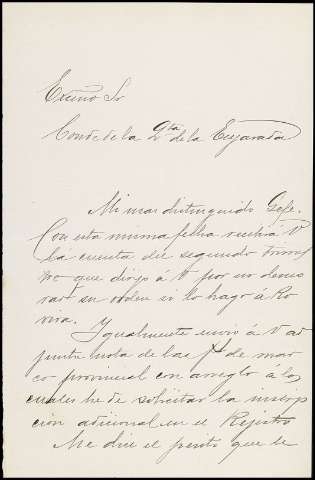 Excmo Sr
Conde de la Qta de la Enjarada
Mi mas distinguido Gefe.
Con esta misma fecha recibirá V
la cuenta del segundo trimes
tre que dirijo á V por no demo
rar su orden si lo hago á Ro
vira. Y Igualmente envio á V ad
junta nota de las de mar
co provincial con arreglo á los
cuales he de solicitar la inscrip
cion adicional en el Registro
Me dice el perito que le